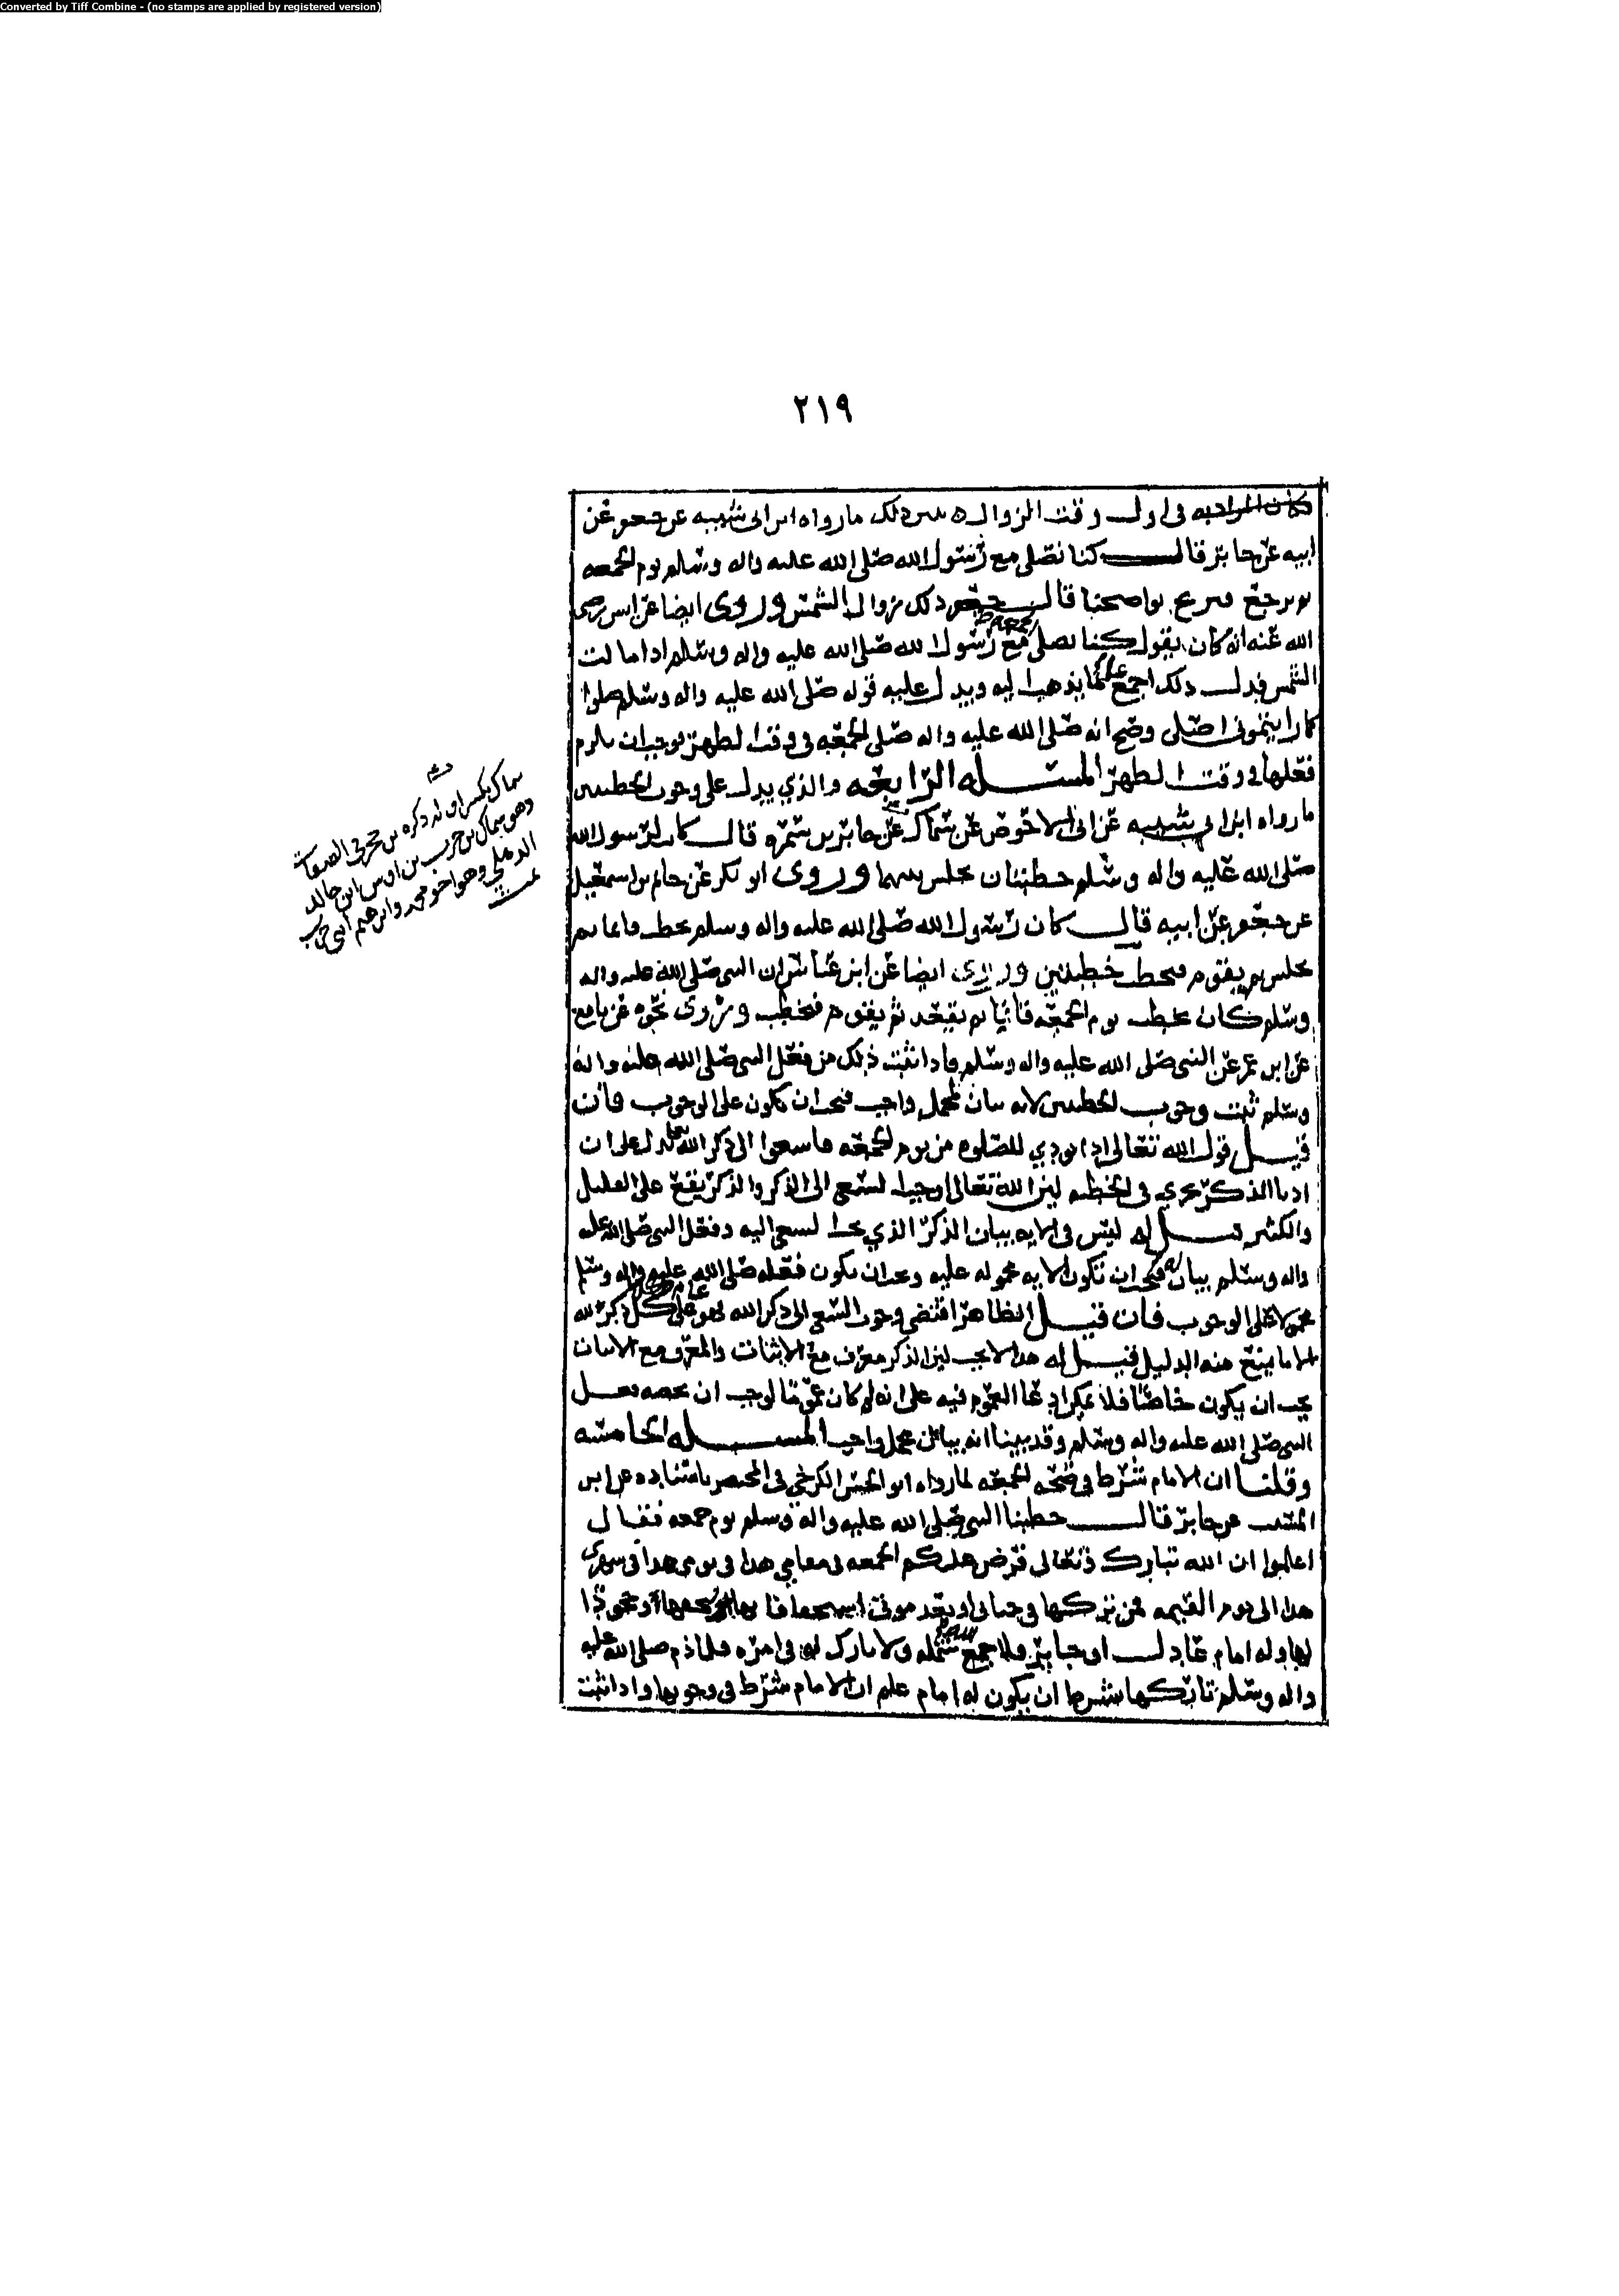 Converted by Tiff Combine - (no stamps are applied by registered version)
٢١٩
في اول وقت الزوال بين ذلك ما رواه ابن ابي شيبه عن جعفر عن
ابيه عن جابر قال كنا نصلي مع رسول الله صلى الله عليه واله وسلم يوم الجمعه
ثم نرجع فنريح نواضحنا قال جعفر وذلك زوال الشمس وروى ايضا عن انس رضي
الله عنه انه كان يقول كنا نصلي مع رسول الله صلى الله عليه واله وسلم اذا مالت
الشمس فدل ذلك اجمع على ما يذهب اليه ويدل عليه قوله صلى الله عليه واله وسلم صلوا
كما رايتموني اصلي وصح انه صلى الله عليه واله صلى الجمعه في وقت الظهر فوجب ان يلزم
فعلها في وقت الظهر المسئله الرابعه والذي يدل على وجوب الخطبتين
ما رواه ابن ابي شيبه عن ابي الاحوص عن سماك عن جابر بن سمره قال كان لرسول الله
صلى الله عليه واله وسلم خطبتان يجلس بينهما وروى ابو بكر عن حاتم بن اسمعيل
عن جعفر عن ابيه قال كان رسول الله صلى الله عليه واله وسلم يخطب قائما ثم
يجلس ثم يقوم فيخطب خطبتين وروى ايضا عن ابن عباس ان النبي صلى الله عليه واله
وسلم كان يخطب يوم الجمعه قائما ثم يقعد ثم يقوم فيخطب وروى نحوه عن نافع
عن ابن عمر عن النبي صلى الله عليه واله وسلم فاذا ثبت ذلك من فعل النبي صلى الله عليه واله
وسلم ثبت وجوب الخطبتين لانه بيان لمجمل واجب فيجب ان يكون على الوجوب فان
قيل قول الله تعالى اذا نودي للصلوه من يوم الجمعه فاسعوا الى ذكر الله يدل على ان
ادنا الذكر يجزي في الخطبه لان الله تعالى اوجب السعي الى الذكر والذكر يقع على القليل
والكثير قيل له ليس في الايه بيان الذكر الذي يجب السعي اليه وفعل النبي صلى الله عليه
واله وسلم بيان له فيجب ان تكون الايه محموله عليه ويجب ان يكون فعله صلى الله عليه واله وسلم
محمولا على الوجوب فان قيل الظاهر اقتضى وجوب السعي الى ذكر الله فهو على كل ذكر لله
الا ما يمنع منه الدليل قيل له هذا لا يجب لان الذكر معرف مع الاثبات والمعرف مع الاثبات
يجب ان يكون خاصا فلا يمكن ادعا العموم فيه على انه لو كان عموما لوجب ان يخصه بفعل
النبي صلى الله عليه واله وسلم وقد بينا انه بيان مجمل واجب المسئله الخامسه
وقلنا ان الامام شرط في صحه الجمعه لما رواه ابو الحسن الكرخي في المختصر باسناده عن ابن
المسيب عن جابر قال خطبنا النبي صلى الله عليه واله وسلم يوم جمعه فقال
اعلموا ان الله تبارك وتعالى فرض عليكم الجمعه في مقامي هذا في يومي هذا في شهري
هذا الى يوم القيمه فمن تركها في حياتي او بعد موتي استخفافا بها او جحودا
لها وله امام عادل او جاير فلا جمع الله شمله ولا بارك له في امره فلما ذم صلى الله عليه
واله وسلم تاركها بشرط ان يكون له امام علم ان الامام شرط في وجوبها واذا ثبت
سماك بكسر اوله ذكره
وهو سماك بن حرب بن اوس ابن خالد
الذهلي وهو اخو محمد وابرهيم ابني حرب
تمت